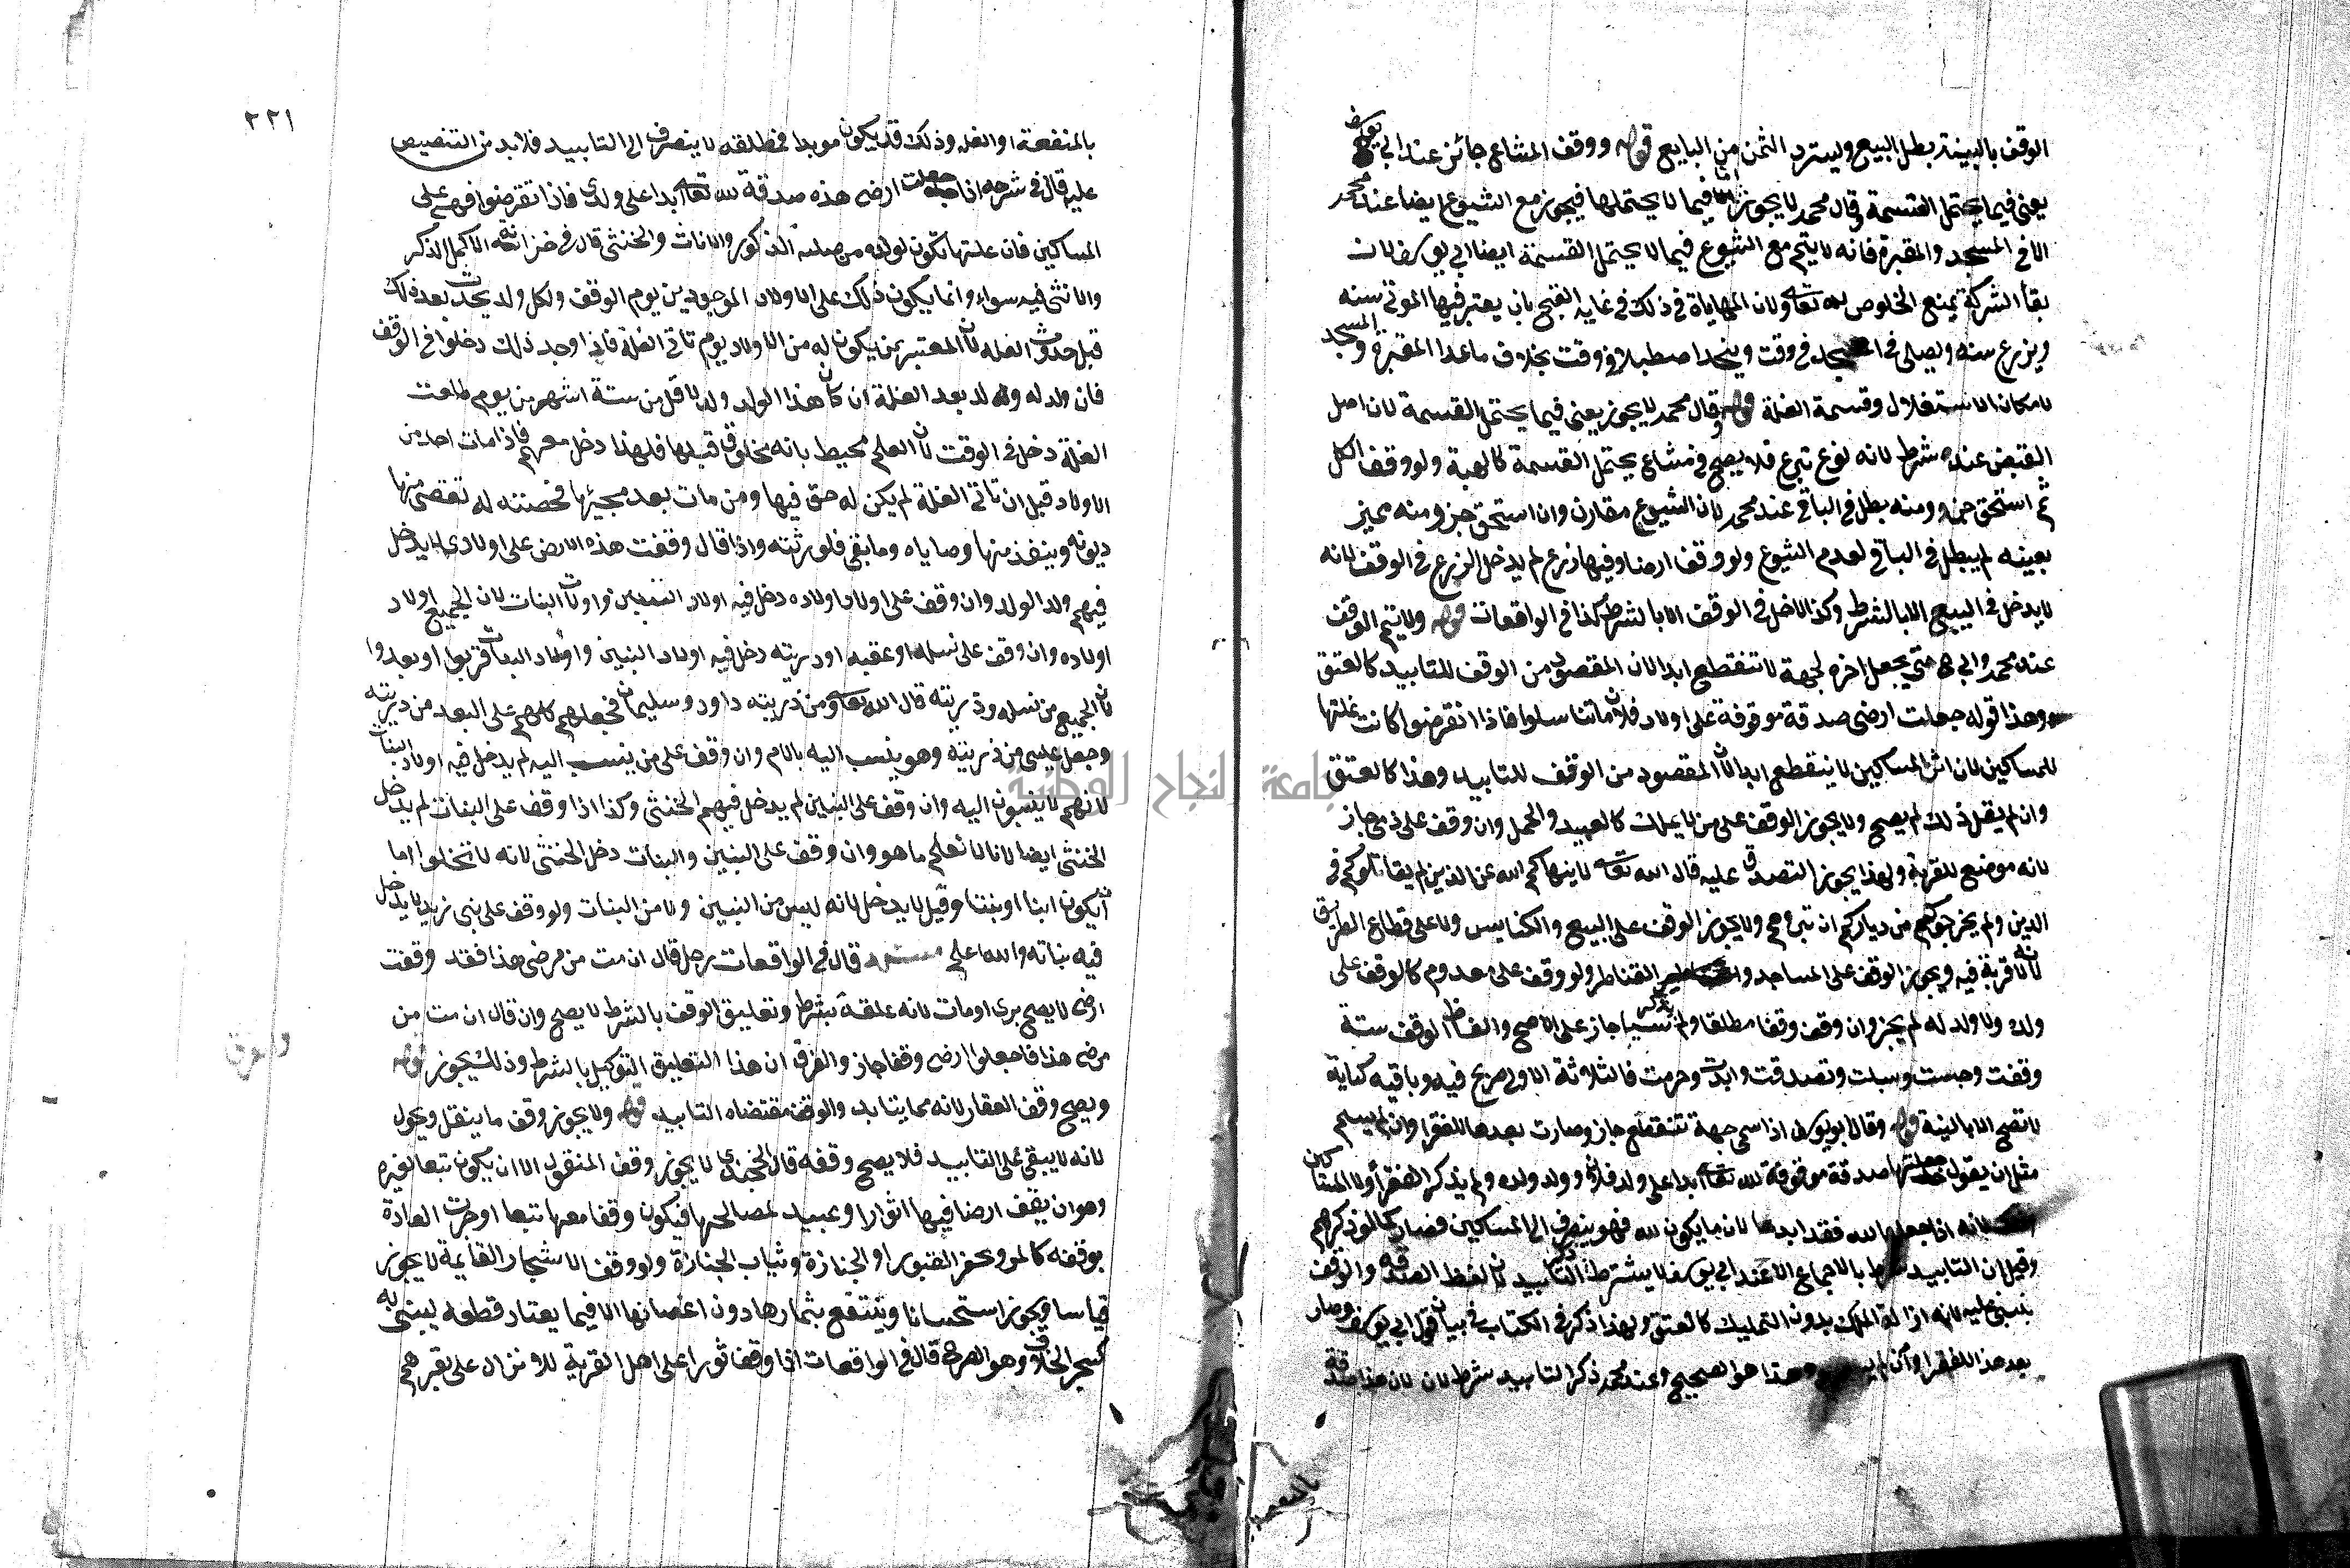 الوقف بالبينة بطل البيع ويسترد الثمن من البايع قوله ووقف المشاع جائز عند ابي يوسف
يعني فيما يحتمل القسمة وقال محمد لا يجوز اما فيما لا يحتملها فيجوز مع الشيوع ايضا عند محمد
الا في المسجد والمقبرة فانه لا يتم مع الشيوع فيما لا يحتمل القسمة ايضا ابي يوسف لان
بقا الشركة يمنع الخلوص لله تعالى ولان المهاياة في ذلك في غاية القبح بان يعتبر فيها الموتي سنه
ويزرع سنه ويصلى في المسجد في وقت ويتخذ اصطبلا في وقت بخلاف ما عدا المقبرة والمسجد
لامكان الاستغلال وقسمة الغلة قوله وقال محمد لا يجوز يعني فيما يحتمل القسمة لان اصل
القبض عنده شرط لانه نوع تبرع فلا يصح في مشاع يحتمل القسمة كالهبة ولو وقف الكل
ثم استحق جزو منه بطل في الباقي عند محمد لان الشيوع مقارن وان استحق جزو منه مميز
بعينه لم يبطل في الباقي لعدم الشيوع ولو وقف ارضا وفيها زرع لم يدخل الزرع في الوقف لانه
لا يدخل في البيع الا بالشرط وكذا لا يدخل في الوقف الا بالشرط كذا في الواقعات قوله ولا يتم الوقف
عند محمد وابي ح حتى يجعل اخره لجهة لا تنقطع ابدا لان المقصود من الوقف للتابيد كالعتق
وهذا قوله جعلت ارضي صدقة موقوفة على اولاد فلان ما تناسلوا فاذا انقرضوا كانت غلتها
للمساكين لان اثر المساكين لا ينقطع ابدا لان المقصود من الوقف للتابيد وهذا كالعتق
وان لم يقل ذلك لم يصح ولا يجوز الوقف على من لا يملك كالعبيد والحمل وان وقف على ذمي جاز
لانه موضع للقربة ولهذا يجوز التصدق عليه قال الله تعالى لا ينهاكم الله عن الذين لم يقاتلوكم في
الدين ولم يخرجوكم من دياركم ان تبروهم ولا يجوز الوقف على البيع والكنايس ولا على قطاع الطريق
لانه لا قربة فيه ويجوز الوقف على المساجد والقناطر ولو وقف على معدوم كالوقف على
ولده ولا ولد له لم يجز وان وقف وقفا مطلقا ولم يذكر شيا جاز على الاصح والفاظ الوقف ستة
وقفت وحبست وسبلت وتصدقت وابدت وحرمت فالثلاثة الاولى صريح فيه وباقيه كناية
لا تصح الا بالنية قوله وقال ابو يوسف اذا سمى جهة تنقطع جاز وصارت بعدها للفقرا وان لم يسمهم
مثل ان يقول جعلتها صدقة موقوفة لله تعالى ابدا على ولد فلان وولد ولده ولم يذكر الفقرا ولا المساكين
لانه اذا جعلها لله فقد ابدها لان ما يكون لله فهو ينصرف الى المساكين فصار كما لو ذكرهم
وقيل ان التابيد شرط بالاجماع الا عند ابي يوسف لا يشترط ذكر التابيد لان لفظ الصدقة والوقف
ينبي عليه لانه ازالة الملك بدون التمليك كالعتق ولهذا ذكر في الكتاب في بيان قول ابي يوسف وصار
بعدها للفقرا وان لم وهذا هو الصحيح وعند محمد ذكر التابيد شرط لان هذا صدقة
بالمنفعة
٢٢١
بالمنفعة او الغله وذلك قد يكون موبدا فمطلقه لا ينصرف الى التابيد فلا بد من التنصيص
عليه قال في شرحه اذا جعلت ارضي هذه صدقة لله تعالى ابدا على ولدي فاذا انقرضوا فهي على
المساكين فان غلتها تكون لولده من صلبه الذكور والاناث والخنثى قال في خزانه الاكمل الذكر
والانثى فيه سواء وانما يكون ذلك على الاولاد الموجودين يوم الوقف ولكل ولد يحدث بعد ذلك
قبل حدوث الغله لان المعتبر بمن يكون له من الاولاد يوم تاتي الغلة فاذا وجد ذلك دخلوا في الوقف
فان ولد له ولد بعد الغلة ان كان هذا الولد ولد لاقل من ستة اشهر من يوم طلعت
الغلة دخل في الوقت لان العلم محيط بانه مخلوق قبلها فلهذا دخل معهم فاذا مات احد من
الاولاد قبل ان تاتي الغلة لم يكن له حق فيها ومن مات بعد مجيئها فحصته له تقضى منها
ديونه وينفذ منها وصاياه وما بقي فلورثته واذا قال وقفت هذه الارض على اولادي يدخل
فيهم ولد الولد وان وقف على اولاد اولاده دخل فيه اولاد البنين واولاد البنات لان الجميع اولاد
اولاده وان وقف على نسله او عقبه او ذريته دخل فيه اولاد البنين واولاد البنات قربوا او بعدوا
لان الجميع من نسله وذريته قال الله تعالى ومن ذريته داود وسليمان فجعلهم كلهم على البعد من ذريته
وجعل عيسى من ذريته وهو ينسب اليه بالام وان وقف على من ينسب اليه لم يدخل فيه اولاد البنات
لانهم لا ينسبون اليه وان وقف على البنين لم يدخل فيهم الخنثى وكذا اذا وقف على البنات لم يدخل
الخنثى ايضا لانا لا نعلم ما هو وان وقف على البنين والبنات دخل الخنثى لانه لا تخلوا اما
ان يكون ابنا او بنتا وقيل لا يدخل لانه ليس من البنين ولا من البنات ولو وقف على بني زيد لا يدخل
فيه بناته والله اعلم مسئلة قال في الواقعات رجل قال ان مت من مرضي هذا فقد وقفت
ارضي لا يصح برى او مات لانه علقه بشرط وتعليق الوقف بالشرط لا يصح وان قال ان مت من
مرضي هذا فاجعلوا ارضي وقفا جاز والفرق ان هذا التعليق التوكيل بالشرط وذلك يجوز قوله
ويصح وقف العقار لانه مما يتابد والوقف مقتضاه التابيد قوله ولا يجوز وقف ما ينقل ويحول
لانه لا يبقى على التابيد فلا يصح وقفه قال الخجندي لا يجوز وقف المنقول الا ان يكون تبعا لغيره
وهو ان يقف ارضا فيها اثوارا وعبيد لمصالحها فيكون وقفا معها تبعا او جرت العادة
بوقفه كالمر وبحفر القبور او الجنازة وثياب الجنازة ولو وقف الاشجار القايمة لا يجوز
قياسا ويجوز استحسانا وينتفع بثمارها دون اغصانها الا فيما يعتاد قطعه ليبنى به
كشجر الخلاف وهو الصرح قال في الواقعات اذا وقف ثورا على اهل القرية للانزال على بقرهم
جامعة النجاح الوطنية